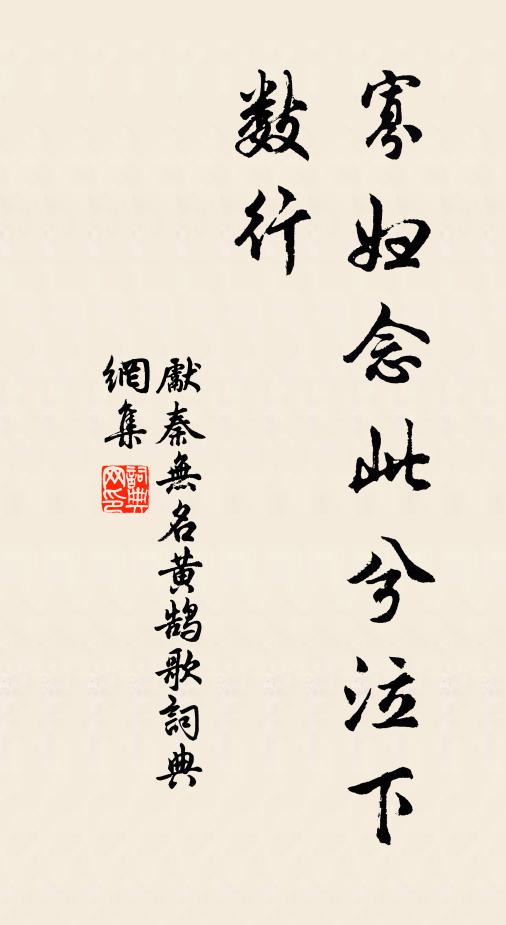 寡妇念此兮泣下
数行
獻秦無名黄鹄歌詞典
網集
詞典
网印